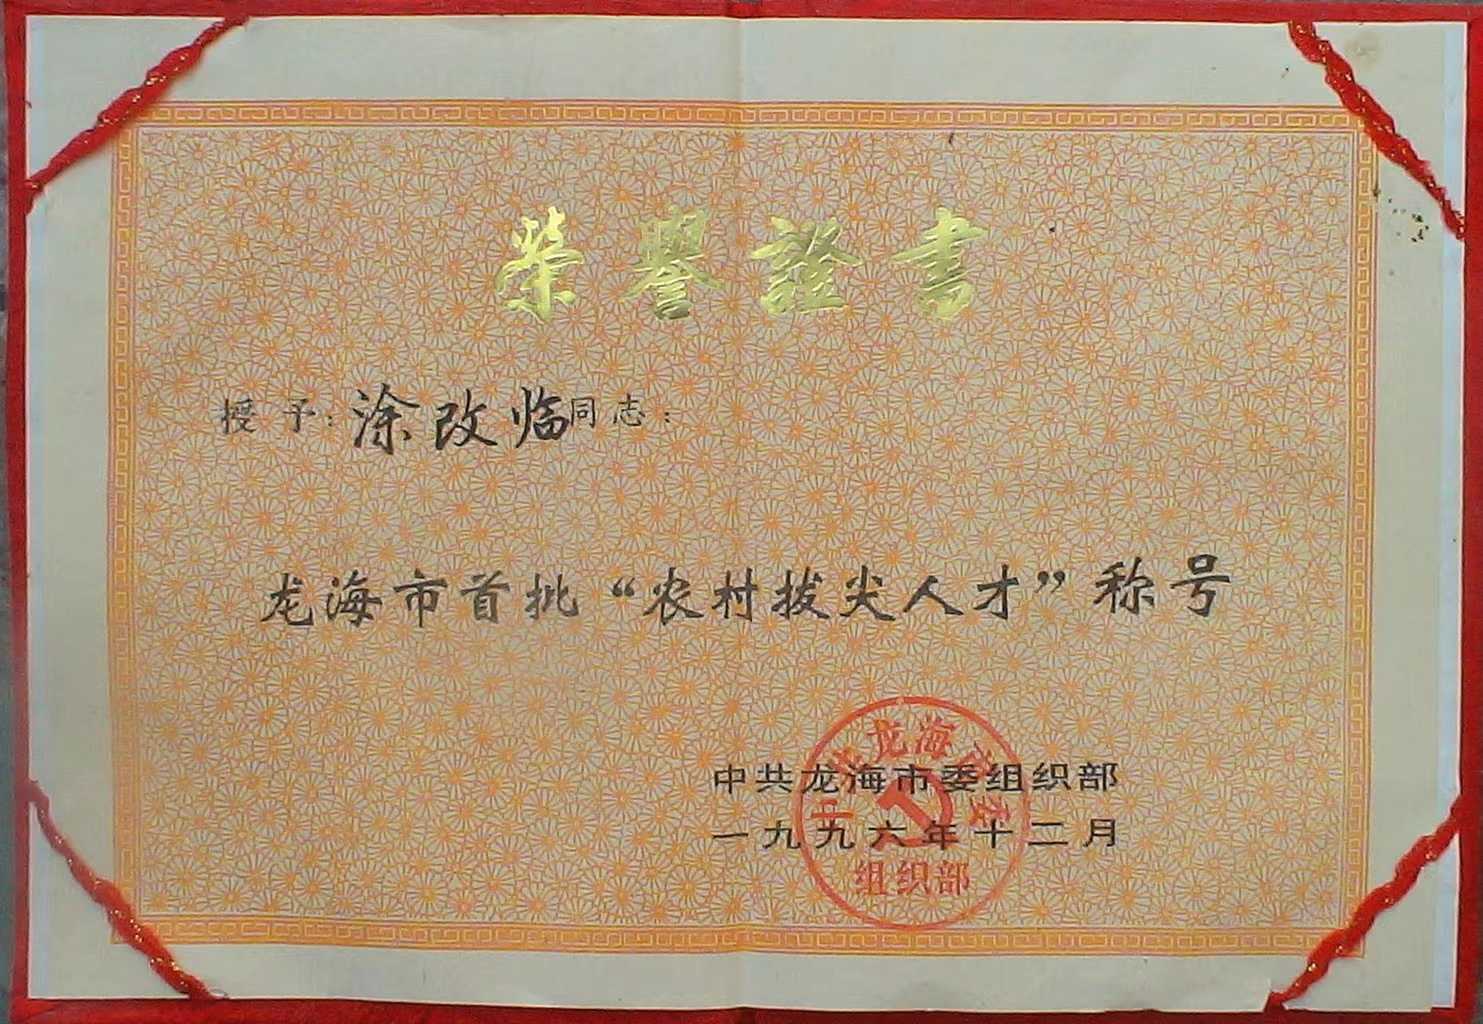 榮譽證書
授予：涂改临同志：
龙海市首批“农村拔尖人才”称号
中共龙海市委组织部
一九九六年十二月
中共龙海市委
组织部